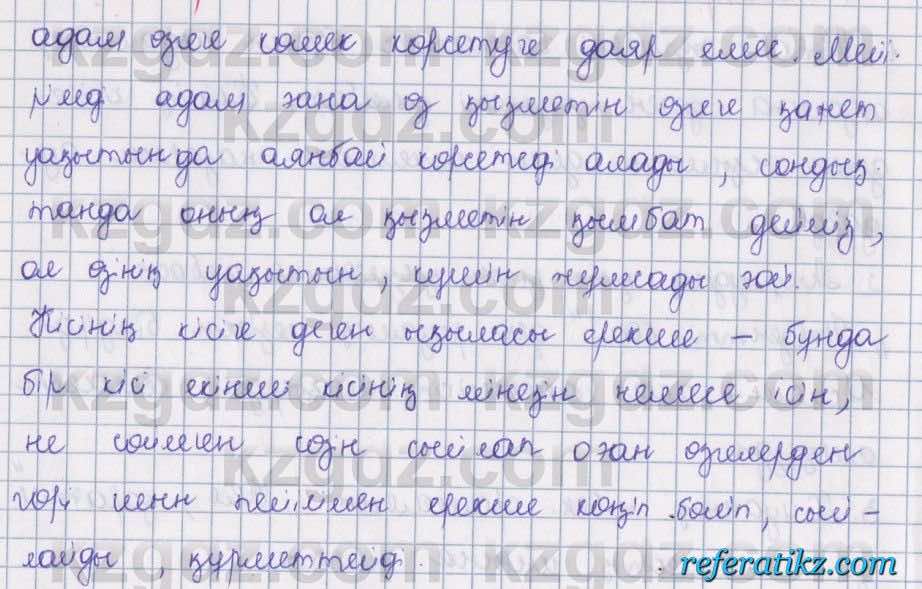 адам өзге көмек көрсетуге даяр емес. Мей-
рімді адам ғана өз қызметін өзге қажет
уақытында аянбай көрсетеді алады, сондық-
танда оның ол қызметін қымбат дейміз,
ол өзінің уақытын, күшін жұмсады ғой.
Кісінің кісіге деген ықыласы ерекше – бұнда
бір кісі екінші кісінің мінезін немесе ісін,
не сөйлеген сөзін сыйлап оған өзгелерден
гөрі шенн пейілмен ерекше көңіл бөліп, сый-
лайды, құрметтейді.
kzgdz.com
referatikz.com